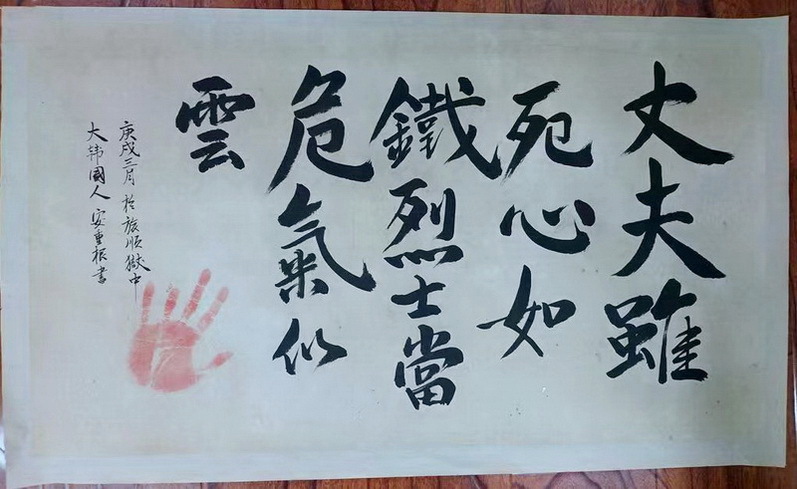 丈夫雖
死心如
鐵烈士當
危氣似
雲
庚戌三月於旅順獄中
大韩國人安重根書